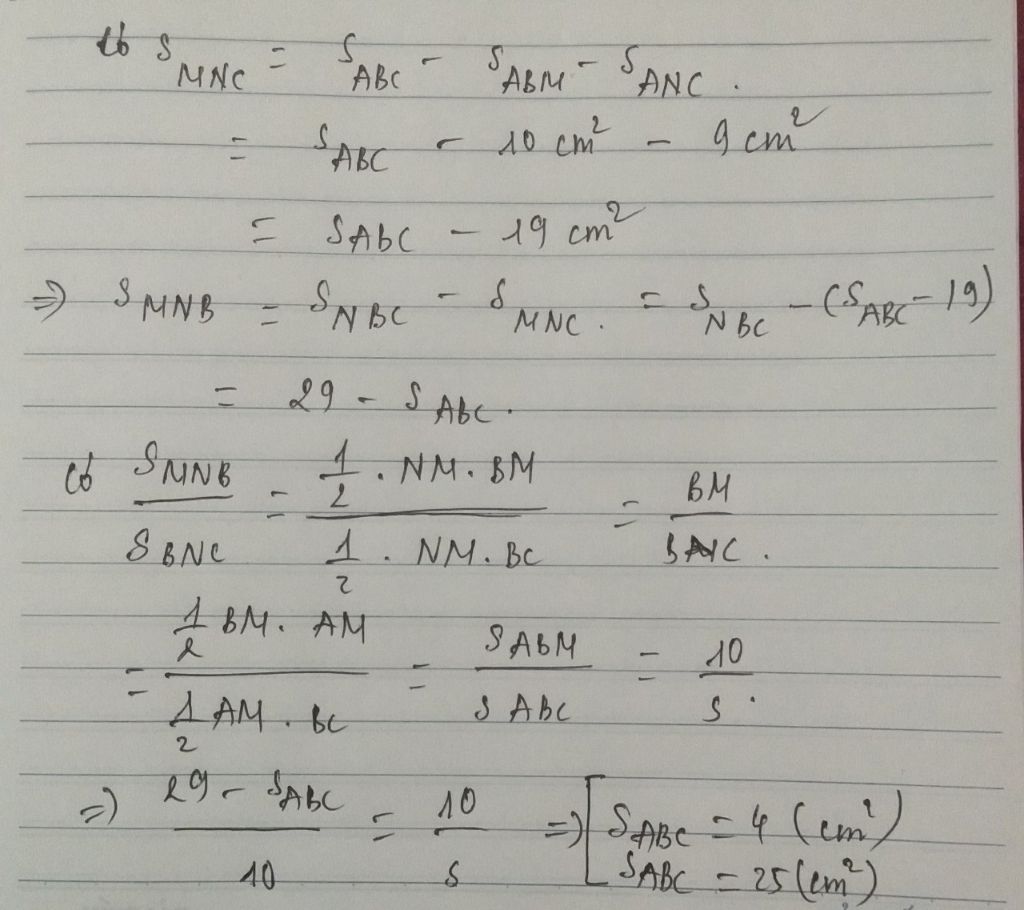 Có S_MNC = S_ABC - S_ABM - S_ANC .
= S_ABC - 10 cm² - 9 cm²
= S_ABC - 19 cm²
=> S_MNB = S_NBC - S_MNC . = S_NBC - (S_ABC - 19)
= 29 - S_ABC .
Có S_MNB / S_BNC = (1/2 . NM . BM) / (1/2 . NM . BC) = BM / BC .
= (1/2 BM . AM) / (1/2 AM . BC) = S_ABM / S_ABC = 10 / S .
=> (29 - S_ABC) / 10 = 10 / S => [ S_ABC = 4 (cm²)
S_ABC = 25 (cm²)